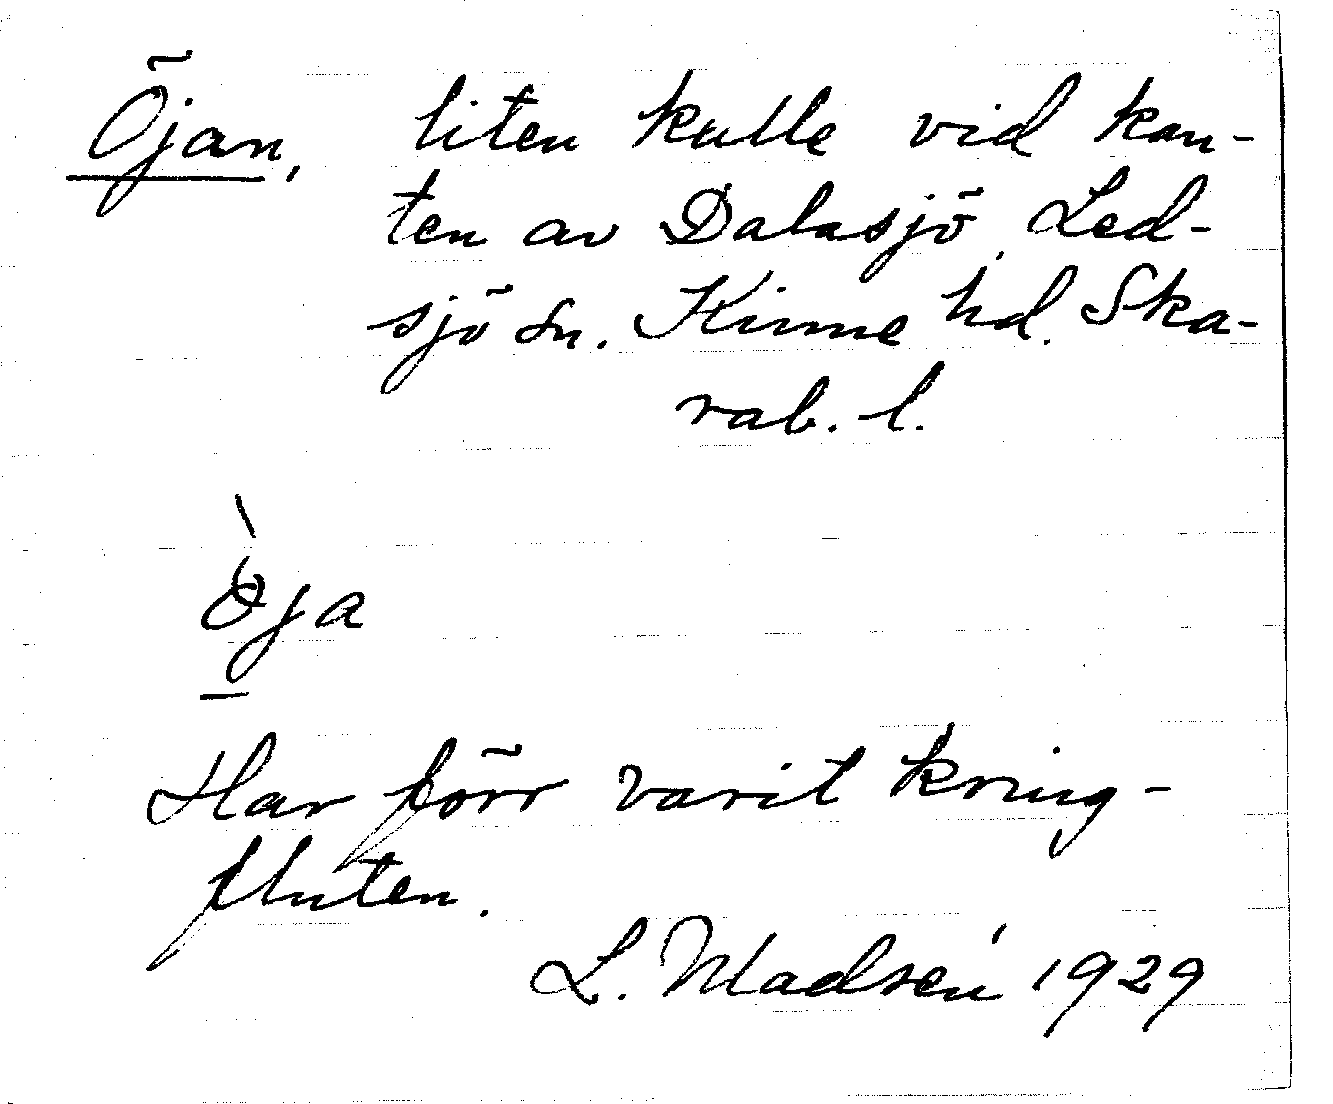 Öjan, liten kulle vid kan-
ten av Dalasjö, Led-
sjö sn. Kinne hd. Ska-
rab. l.
Öja
Har förr varit kring-
fluten.
L. Madsén 1929